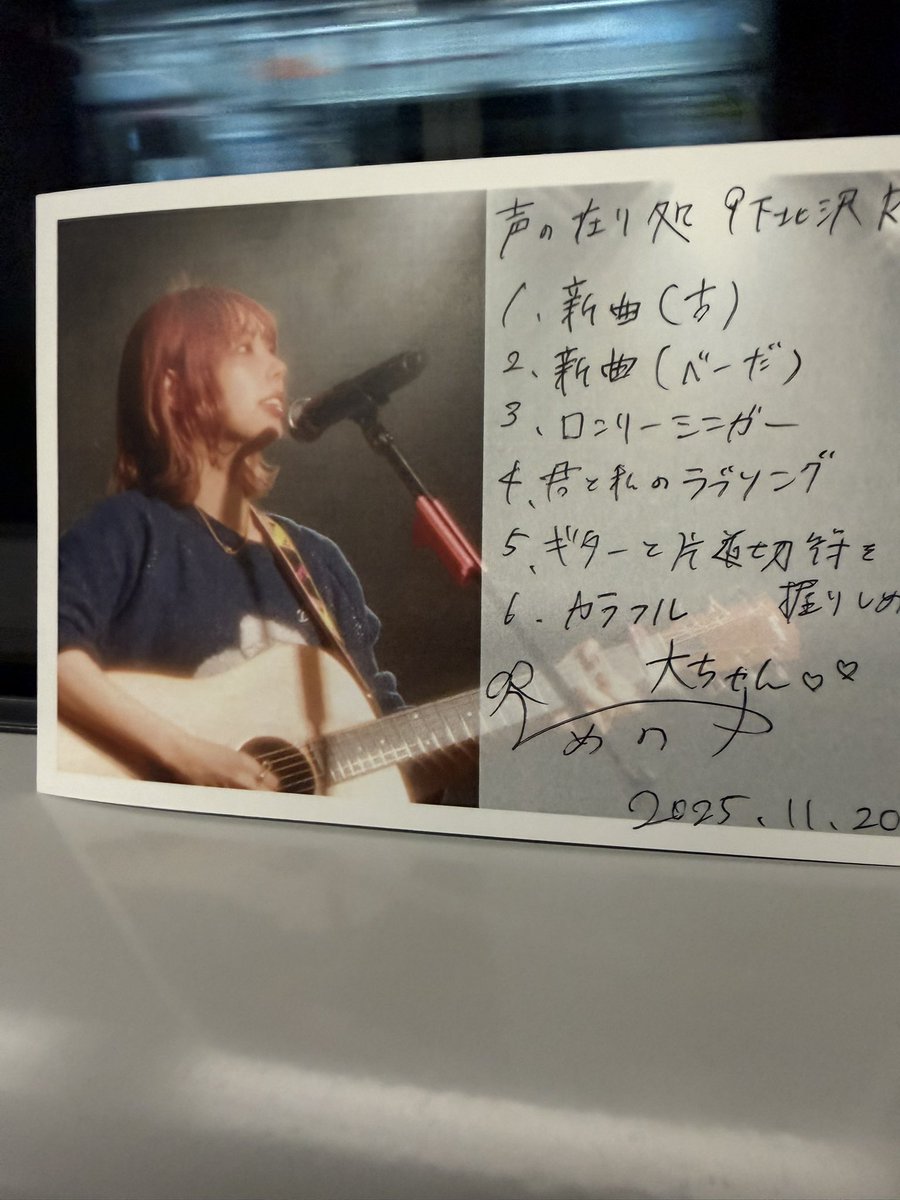 声の在り処 @下北沢
1. 新曲(古)
2. 新曲(べーだ)
3. ロンリーミニガー
4. 君と私のラブソング
5. ギターと片道切符を
握りしめ
6. カラフル
大ちゃん♡♡
2025.11.20